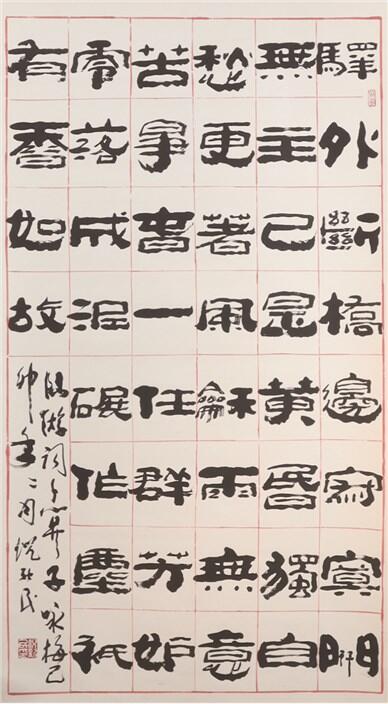 驛外斷橋邊寂寞開
無主已是黃昏獨自
愁更著風龢雨無意
苦爭春一任群芳妒
零落成泥碾作塵衹
有香如故
陸游詞卜算子咏梅己
卯年二月民